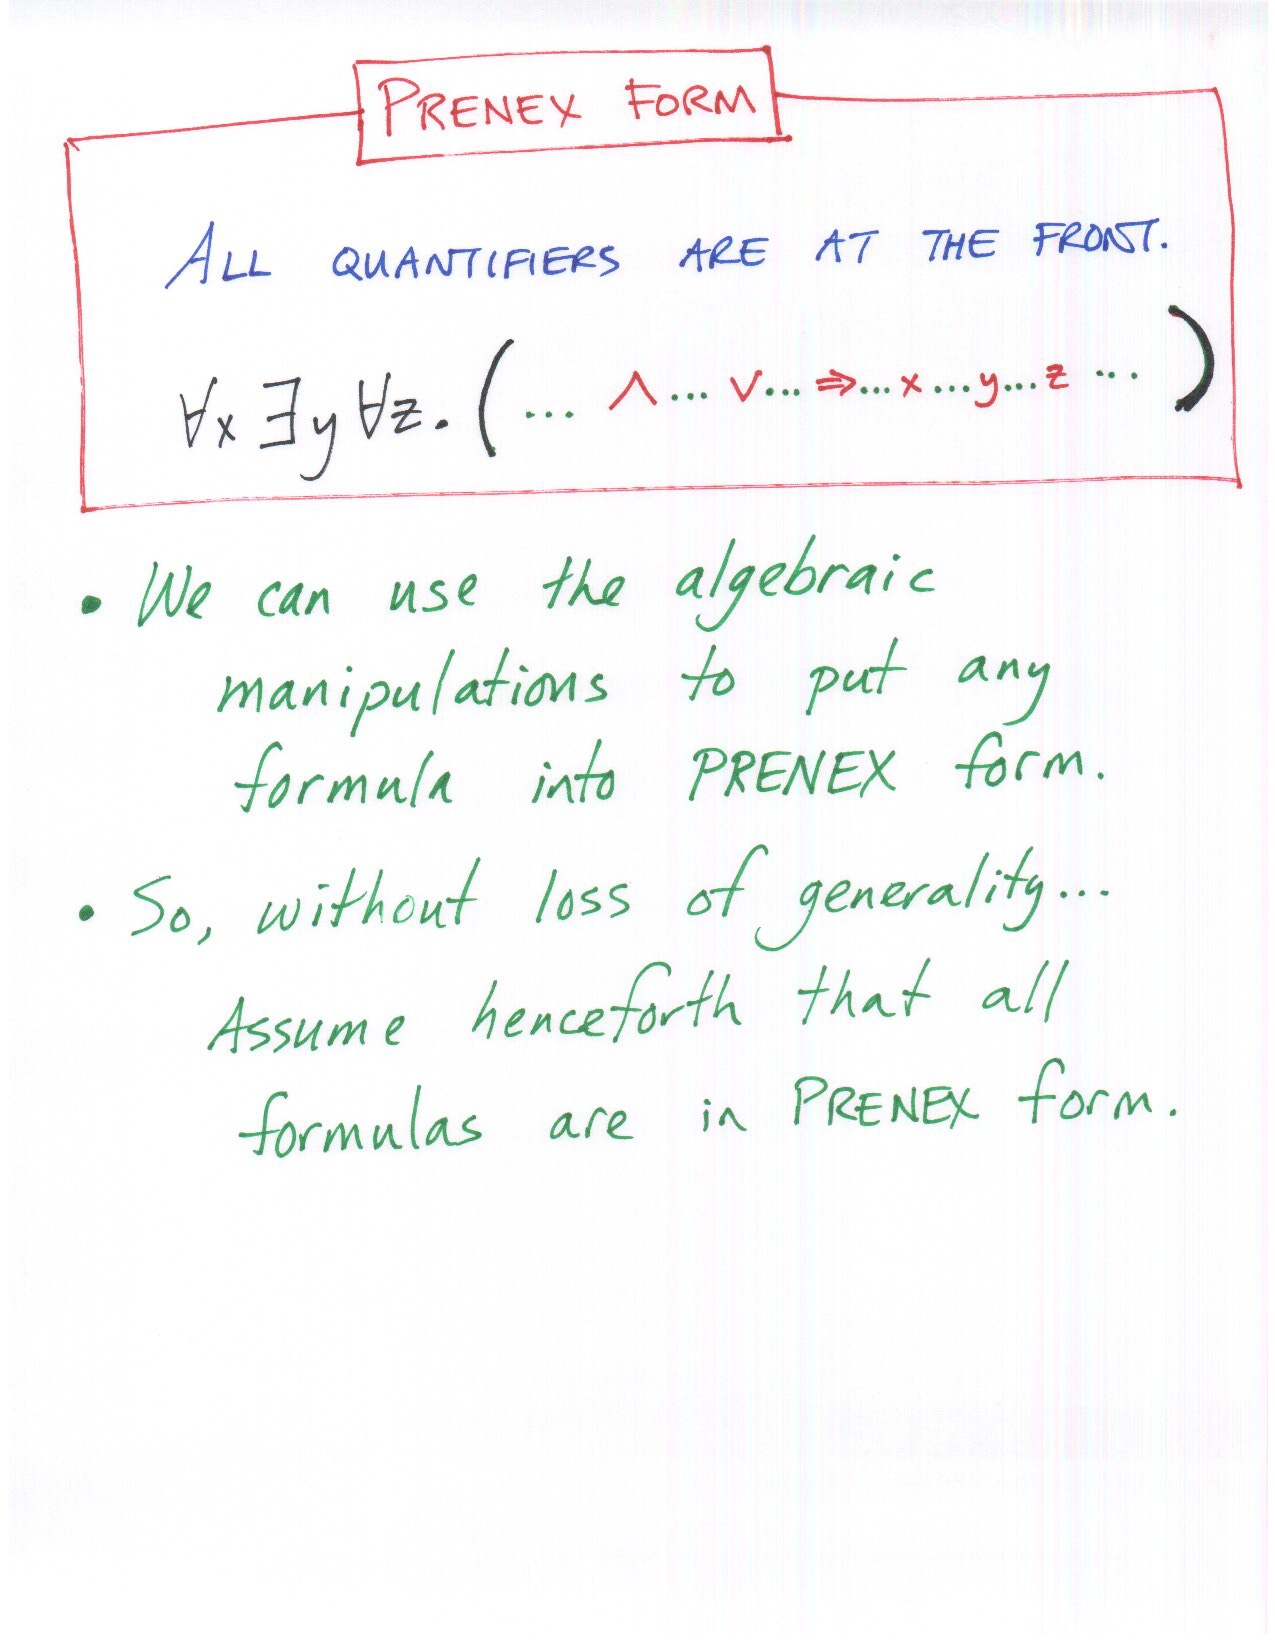 PRENEX FORM
ALL QUANTIFIERS ARE AT THE FRONT.
∀x ∃y ∀z. ( ... ∧ ... ∨ ... ⇒ ... x ... y ... z ... )
• We can use the algebraic
manipulations to put any
formula into PRENEX form.
• So, without loss of generality...
Assume henceforth that all
formulas are in PRENEX form.